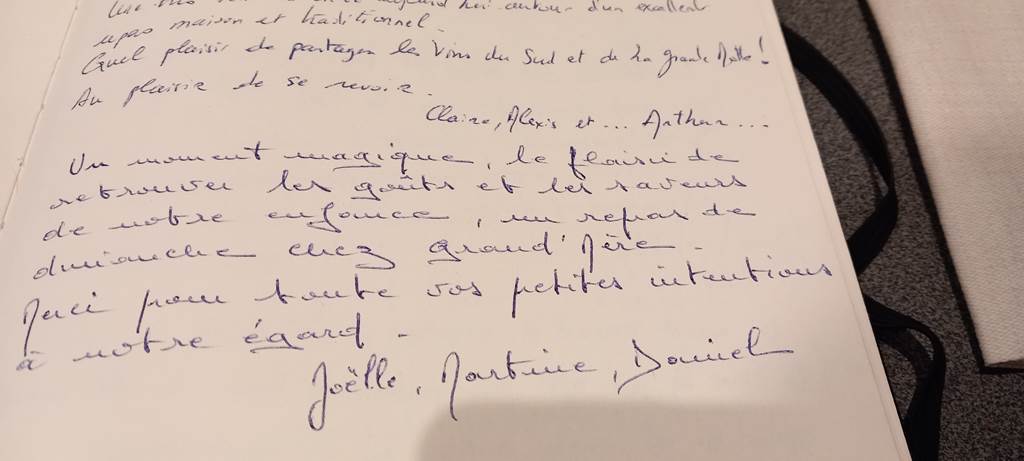 autour d'un excellent
repas maison et traditionnel.
Quel plaisir de partager les Vins du Sud et de la grande Motte !
Au plaisir de se revoir.
Claire, Alexis et ... Arthur ...
Un moment magique, le plaisir de
retrouver les goûts et les saveurs
de notre enfance, un repas de
dimanche chez grand' Mère.
Merci pour toute vos petites intentions
à notre égard.
Joëlle, Martine, Daniel